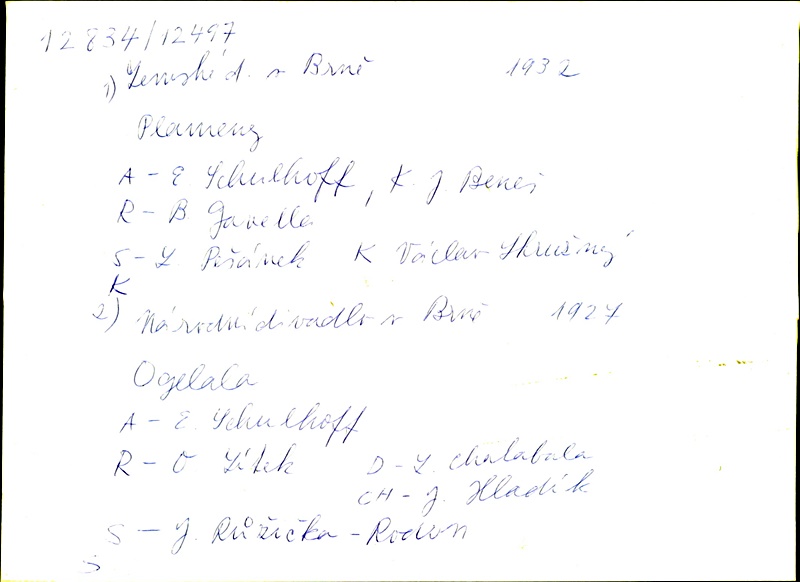 12 834/12497
1) Zemské d. v Brně 1932
Plameny
A - E. Schulhoff, K. J Beneš
R - B Gavella
S - Z. Pišánek K Václav Skrušný
K
2) Národní divadlo v Brně 1927
Ogelala
A - E. Schulhoff
R - O Zítek D - Z. Chalabala
CH - J. Hladík
S - J. Růžička - Rodon
S